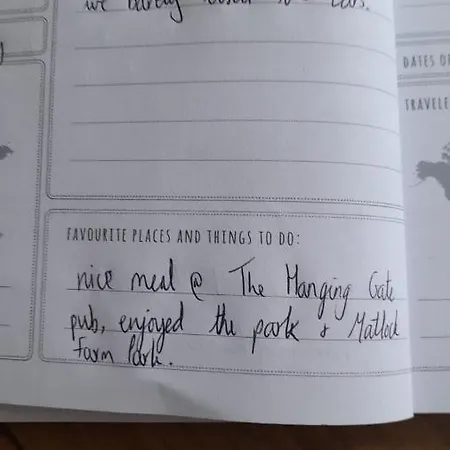 we barely
DATES OF
TRAVELE
FAVOURITE PLACES AND THINGS TO DO:
nice meal @ The Hanging Gate
pub, enjoyed the park & Matlock
Farm Park.